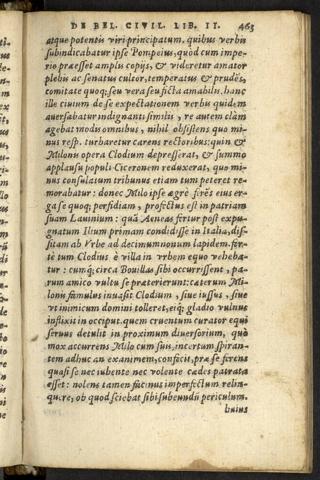 DE BEL. CIVIL. LIB. II. 463
atque potentis viri principatum, quibus verbis
subindicabatur ipse Pompeius, quòd cum impe-
rio præesset amplis copijs, & videretur amator
plebis ac senatus cultor, temperatus & prudēs,
comitate quoq; seu vera seu ficta amabilis. hanc
ille ciuium de se expectationem verbis quidem
auersabatur indignanti similis, re autem clàm
agebat modis omnibus, nihil obsistens quo mi-
nus resp. turbaretur carens rectoribus: quin &
Milonis opera Clodium depresserat, & summo
applausu populi Ciceronem reduxerat, quo mi-
nus consulatum tribunus etiam tum peteret re-
morabatur: donec Milo ipse ægrè ferēs eius er-
ga se quoq; perfidiam, profectus est in patriam
suam Lauinium: quā Aeneas fertur post expu-
gnatum Ilium primam condidisse in Italia, dis-
sitam ab Vrbe ad decimumnonum lapidem. for-
tè tum Clodius è villa in vrbem equo veheba-
tur: cumq; circa Bouillas sibi occurrissent, pa-
rum amico vultu se præterierunt: cæterum Mi-
lonis famulus inuasit Clodium, siue iussus, siue
vt inimicum domini tolleret, eiq; gladio vulnus
inflixit in occiput. quem cruentum curator equi
seruus detulit in proximum diuersorium, quò
mox accurrens Milo cum suis, incertum spiran-
tem adhuc an exanimem, confecit, præ se ferens
quasi se nec iubente nec volente cædes patrata
esset: nolens tamen facinus imperfectum relin-
quere, ob quod sciebat sibi subeundū periculum.
huius